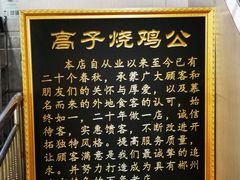 高子烧鸡公
本店自从业以来至今已有
二十个春秋，承蒙广大顾客和
朋友们的关怀与厚爱，以及慕
名而来的外地食客的认可，始
终如一，二十年做一店，诚信
待客，实惠馈客，不断改进开
拓独特风格。提高服务质量，
让顾客满意是我们最诚挚的追
求。并努力打造成为具有郴州